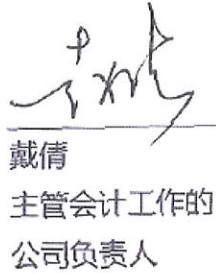 戴倩
主管会计工作的
公司负责人